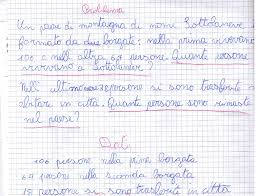 Problema
Un paese di montagna di nome Sottolaneve è
formato da due borgate: nella prima vivevano
106 e nell'altra 67 persone. Quante persone
vivevano a Sottolaneve?
Nell'ultimo 38 persone si sono trasferite a
abitare in città. Quante persone sono rimaste
nel paese?
Dati
106 persone nella prima borgata
67 persone nella seconda borgata
persone si sono trasferite in città